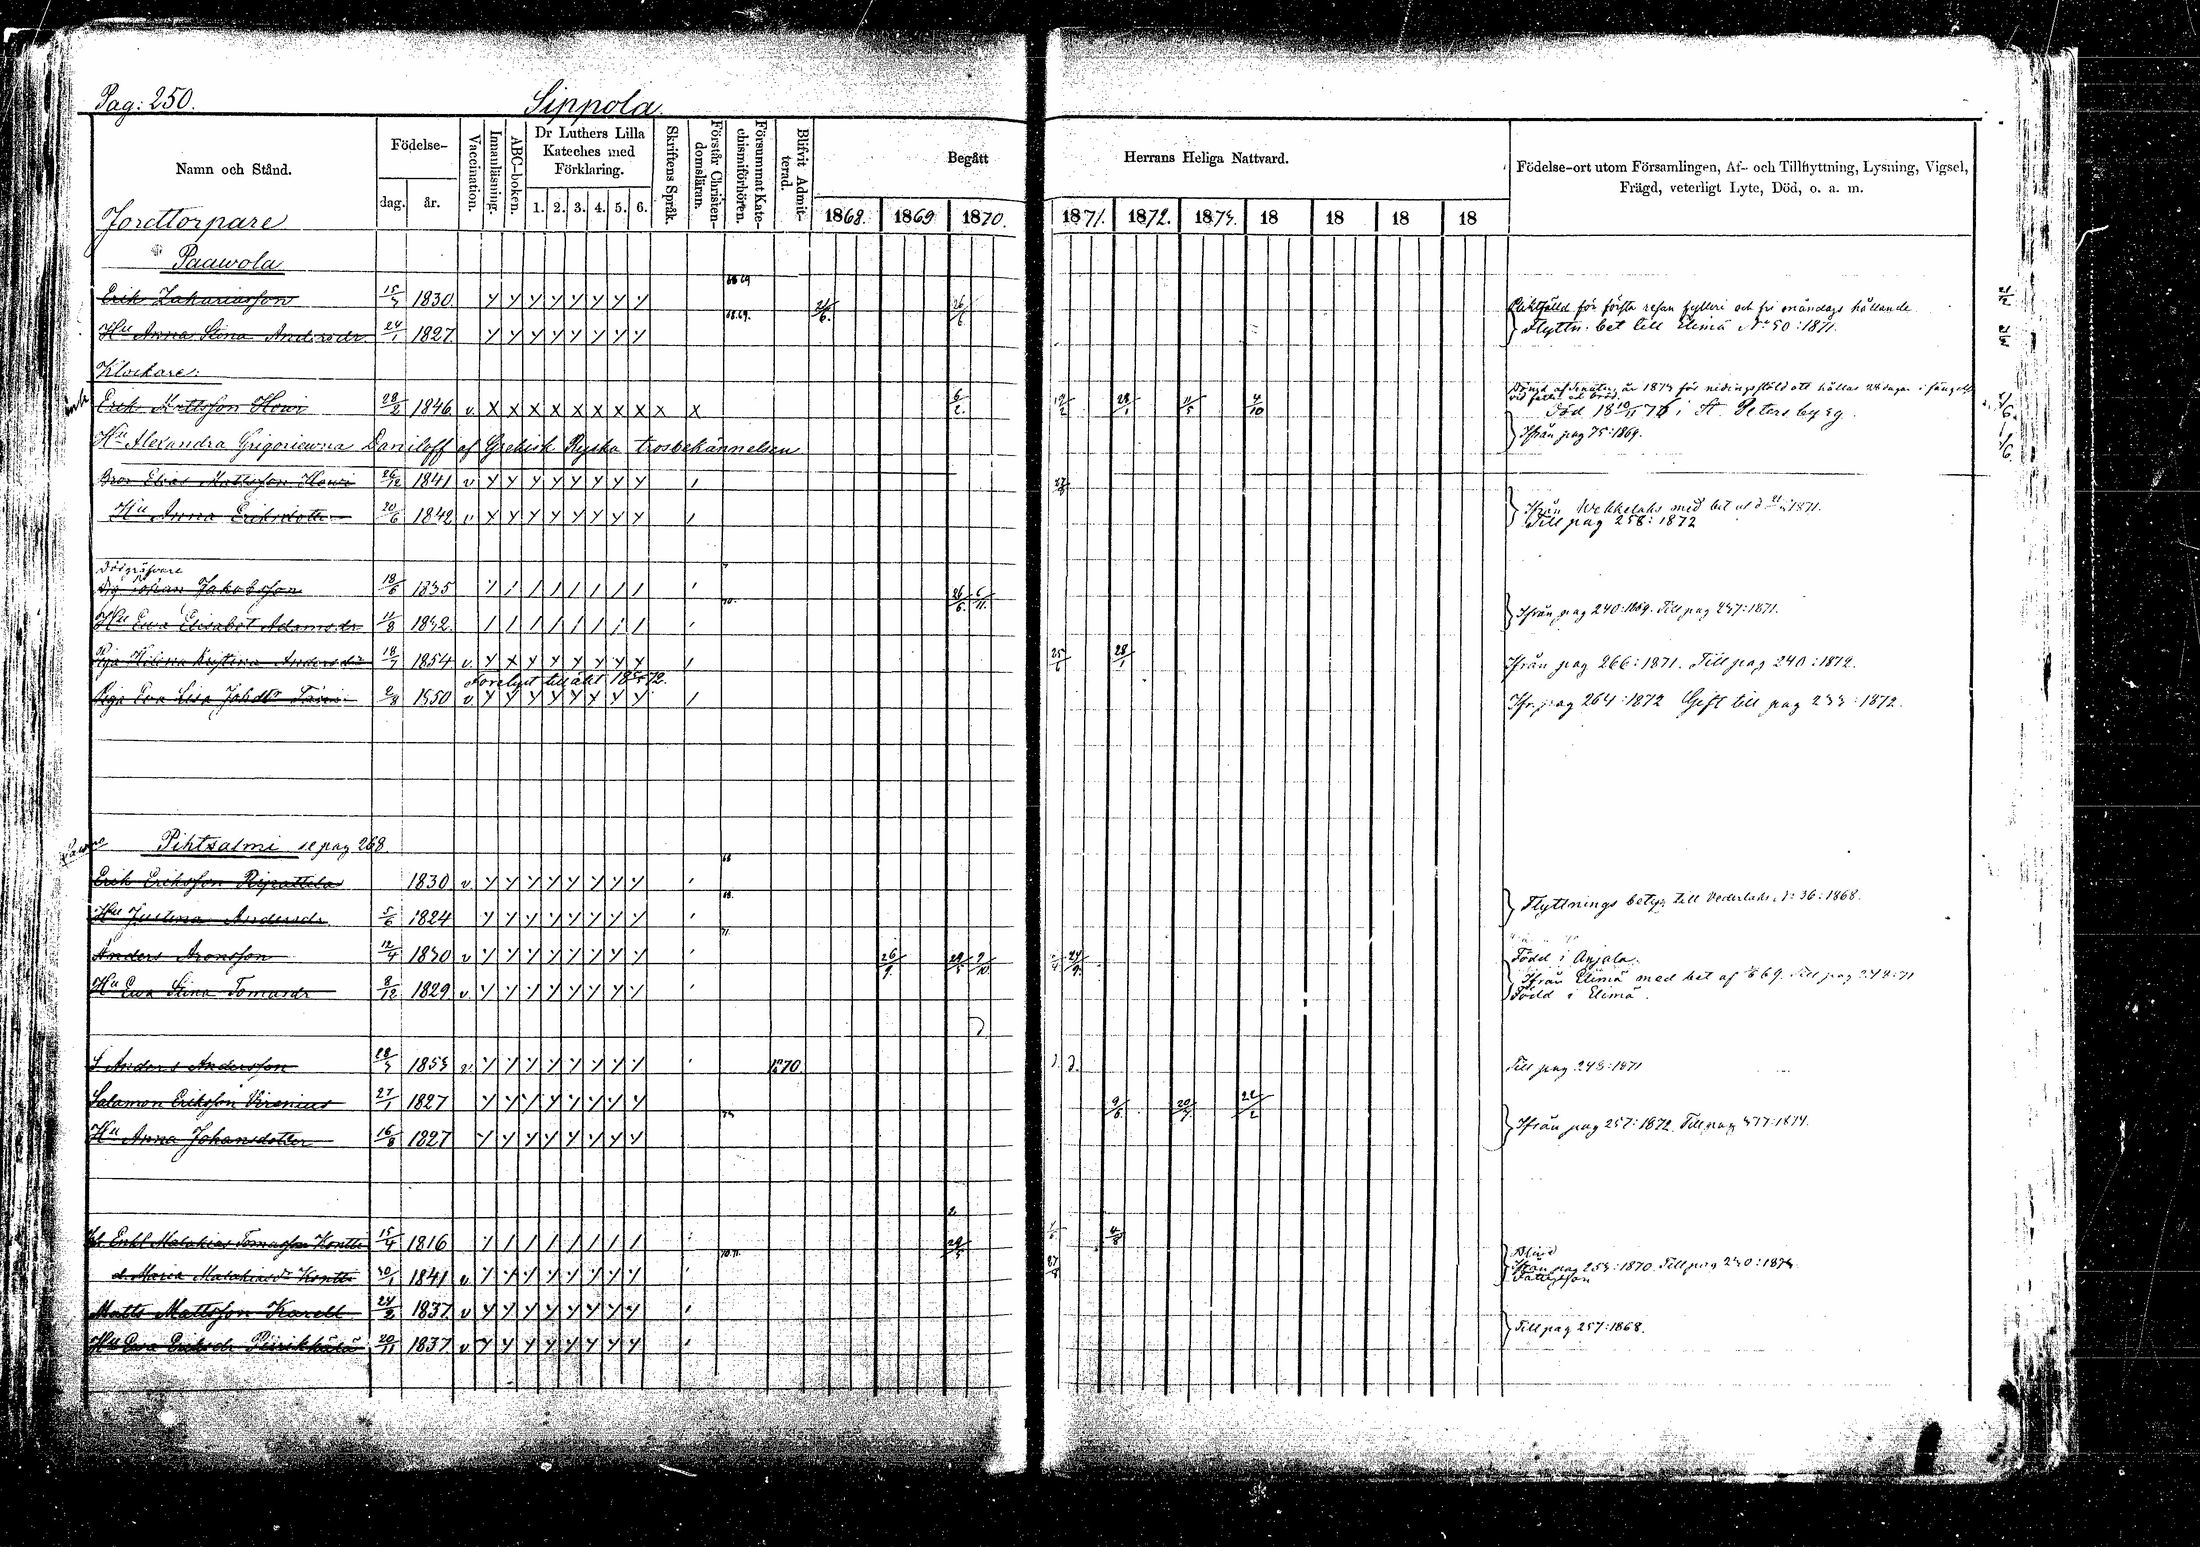 Pag: 250. Sippola
Namn och Stånd.
Födelse-
dag. år.
Vaccination.
Innanläsning.
ABC-boken.
Dr Luthers Lilla Kateches med Förklaring.
1. 2. 3. 4. 5. 6.
Skriftens Språk.
Förstår Christendomsläran.
Försummat Katechismiförhören.
Blifvit Admitterad.
Begått Herrans Heliga Nattvard.
1868. 1869 1870. 1871. 1872. 1873. 18 18 18 18
Födelse-ort utom Församlingen, Af- och Tillflyttning, Lysning, Vigsel,
Frägd, veterligt Lyte, Död, o. a. m.
Jordtorpare
Paawola
Erik Zakariasson 15/3 1830 68 69 21/6. 26/6
Hu Anna Stina Andersdr 24/1 1827 68.69. Flyttn. bet till Elimä No 50:1871.
Klockare:
Erik Mattsson Howi 28/2 1846 v. x x x x x x x x x x 6/2. 12/2 28/1 11/5 4/10 i St Petersburg.
Hu Alexandra Grigoriewna Daniloff af Grekisk Ryska trosbekännelsen Ifrån pag 75:1869.
Bror Elias Mattsson Howi 26/12 1841 v
Hu Anna Eriksdotter 20/6 1842 v Ifrån Wekkelaks med bet 1871.
Till pag 258:1872
Dödgräfvare
Johan Jakobsson 18/6 1835 26/6. 6/11.
Hu Ewa Elisabet Adamsdr 11/8 1832. 70. Ifrån pag 240:1869. Till pag 237:1871.
Piga Helena Kristina Andersdr 18/7 1854 v. 25/6 28/1 Ifrån pag 266:1871. Till pag 240:1872.
Piga Ewa Lisa Johdr 2/8 1850 v. Ifr. pag 264:1872 Gift till pag 233:1872.
Pihtsalmi se pag 268.
Erik Eriksson Ripattila 1830 v. 68
Hu Justina Andersdr 5/6 1824 68. Flyttnings betyg till Vederlaks No 36:1868.
Anders Aronsson 12/4 1830 v 71. 26/9. 29/5 9/10. 24/9. Född i Anjala.
Hu Ewa Stina Tomasdr 8/12 1829 v. Ifrån Elimä med bet af 69. Till pag 248:71
Född i Elimä.
S Anders Andersson 28/3 1853 v. 70 Till pag 248:1871
Salamon Eriksson Virenius 27/1 1827 9/6. 20/7. 22/2
Hu Anna Johansdotter 16/8 1827 73 Ifrån pag 257:1872. Till pag 377:1874.
Enkl Malakias Tomasson Kontti 15/4 1816 29/5 4/8 Blind
d. Maria Malakiasdr Kontti 30/1 1841 v. 70.71. Ifrån pag 253:1870. Till pag 230:1873.
Matts Mattsson Karell 24/2 1837 v
Hu Ewa Eriksdr Piirikkälä 20/11 1837 v Till pag 257:1868.